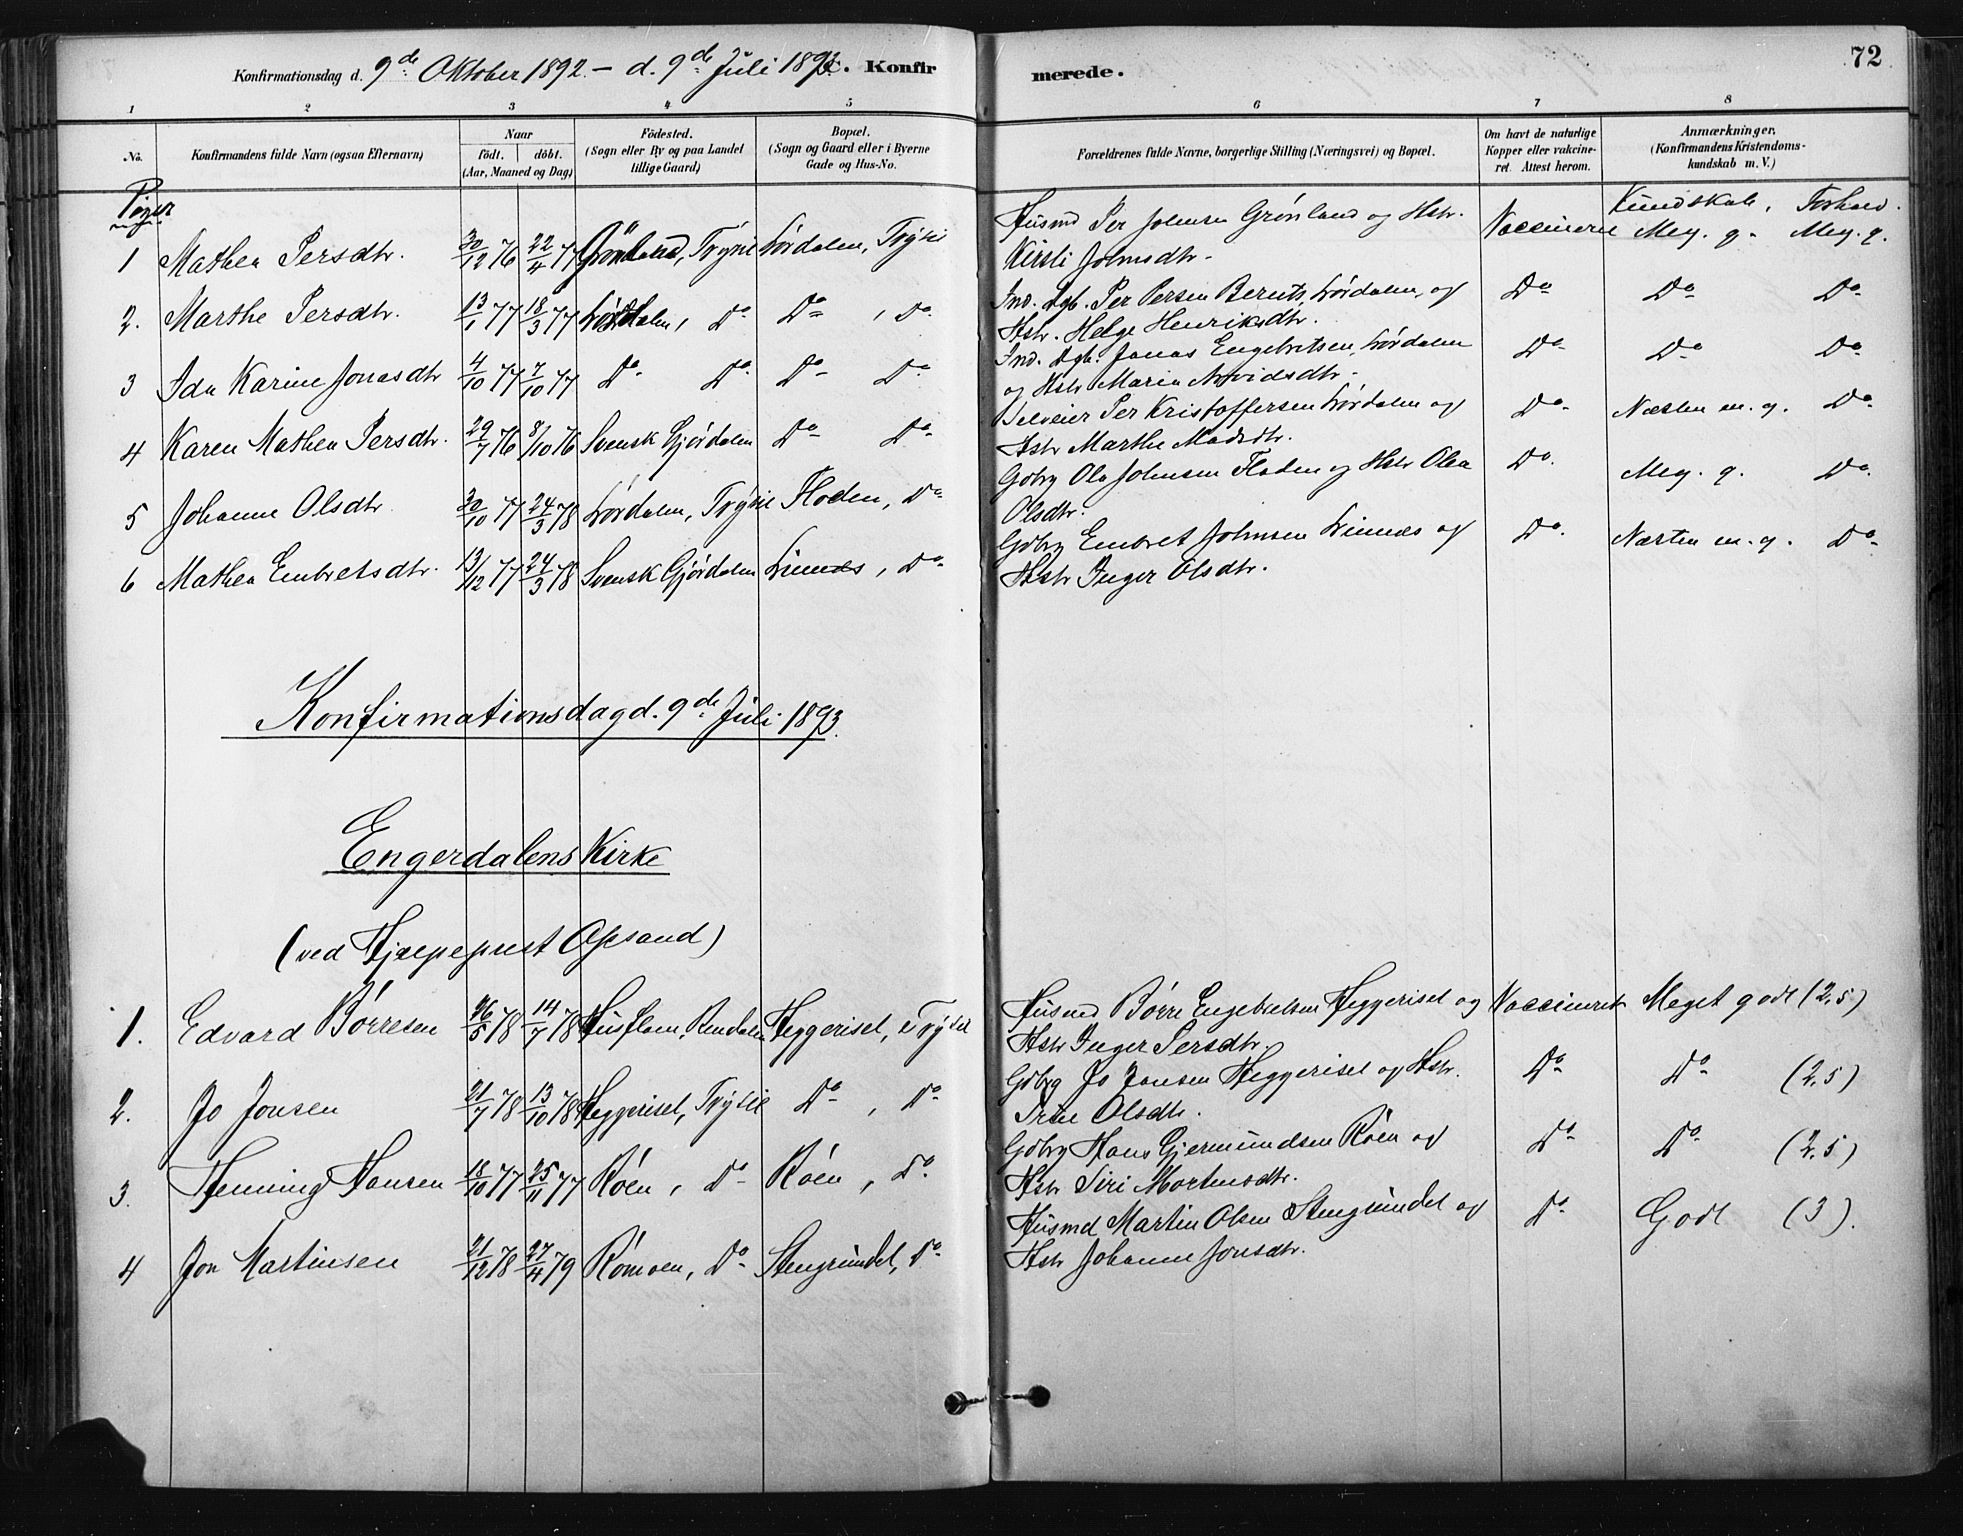 Konfirmationsdag d. 9de Oktober 1892 - d. 9de Juli 1893. Konfirmerede. 72
1 2 3 4 5 6 7 8
No. Konfirmandens fulde Navn (ogsaa Efternavn) Naar födt. döbt. (Aar, Maaned og Dag) Födested. (Sogn eller By og paa Landet tillige Gaard) Bopæl. (Sogn og Gaard eller i Byerne Gade og Hus-No. Forældrenes fulde Navne, borgerlige Stilling (Næringsvei) og Bopæl. Om havt de naturlige Kopper eller vakcineret. Attest herom. Anmærkninger. (Konfirmandens Kristendomskundskab m. V.)
Piger Kundskab. Forhold.
1 Mathea Persdtr. 30/12 76 22/4 77 Grönland, Trysil Lørdalen, Trysil Husmd Per Johnsen Grønland og Hstr. Kirsti Johnsdtr. Vaccineret Meg. g. Meg. g.
2. Marthe Persdtr. 13/1 77 18/3 77 Lørdalen, Do Do, Do Ind. Dgb. Per Persen Berits, Lørdalen, og Hstr. Helge Henriksdtr. Do Do Do
3 Ida Karine Jonasdtr 4/10 77 7/10 77 Do Do Do Do Ind. Dgb. Jonas Engebretsen, Lørdalen og Hstr Maria Arvidsdtr. Do Do Do
4 Karen Mathea Persdtr. 29/7 76 8/10 76 Svensk Gjørdalen Do Do Selveier Per Kristoffersen Lørdalen og Hstr Marthe Madsdtr. Do Næsten m. g. Do
5 Johanne Olsdtr 30/10 77 24/3 78 Lørdalen, Trysil Floden, Do Gdbrg Ola Johnsen Floden og Hstr Olea Olsdtr. Do Meg. g. Do
6 Mathea Embretsdtr. 13/12 77 24/3 78 Svensk Gjørdalen Linnæs, Do Gdbrg Embret Johnsen Linnæs og Hstr Inger Olsdtr. Do Næsten m. g. Do
Konfirmationsdag d. 9de Juli 1893.
Engerdalens Kirke
(ved Hjælpeprest Opsand)
1. Edvard Børresen 5 78 14/7 78 Rendalen Heggeriset, Trysil Husmd Børre Engebretsen Heggeriset og Hstr Inger Persdtr. Vaccineret Meget godt (2,5)
2. Jo Jonsen 21/7 78 13/10 78 Heggeriset, Trysil Do, Do Gdbrg Jo Jonsen Heggeriset og Hstr. Olsdtr. Do Do (2,5)
3. Henning Hansen 18/10 77 25/11 77 Røen, Do Røen, Do Gdbrg Hans Gjermundsen Røen og Hstr Siri Mortensdtr. Do Do (2,5)
4 Jon Martinsen 21/12 78 27/4 79 Rømoen, Do Stengrundet, Do Husmd Martin Olsen Stengrundet og Hstr Johanne Jonsdtr. Do Godt (3).